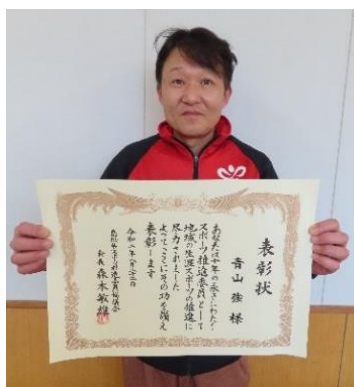 表彰状
青山 強 様
あなたは十年の永きにわたり
スポーツ推進委員として
地域の生涯スポーツの推進に
尽力されました
よってここにその功を讃え
表彰します
令和二年二月二十三日
会長 森本敏雄